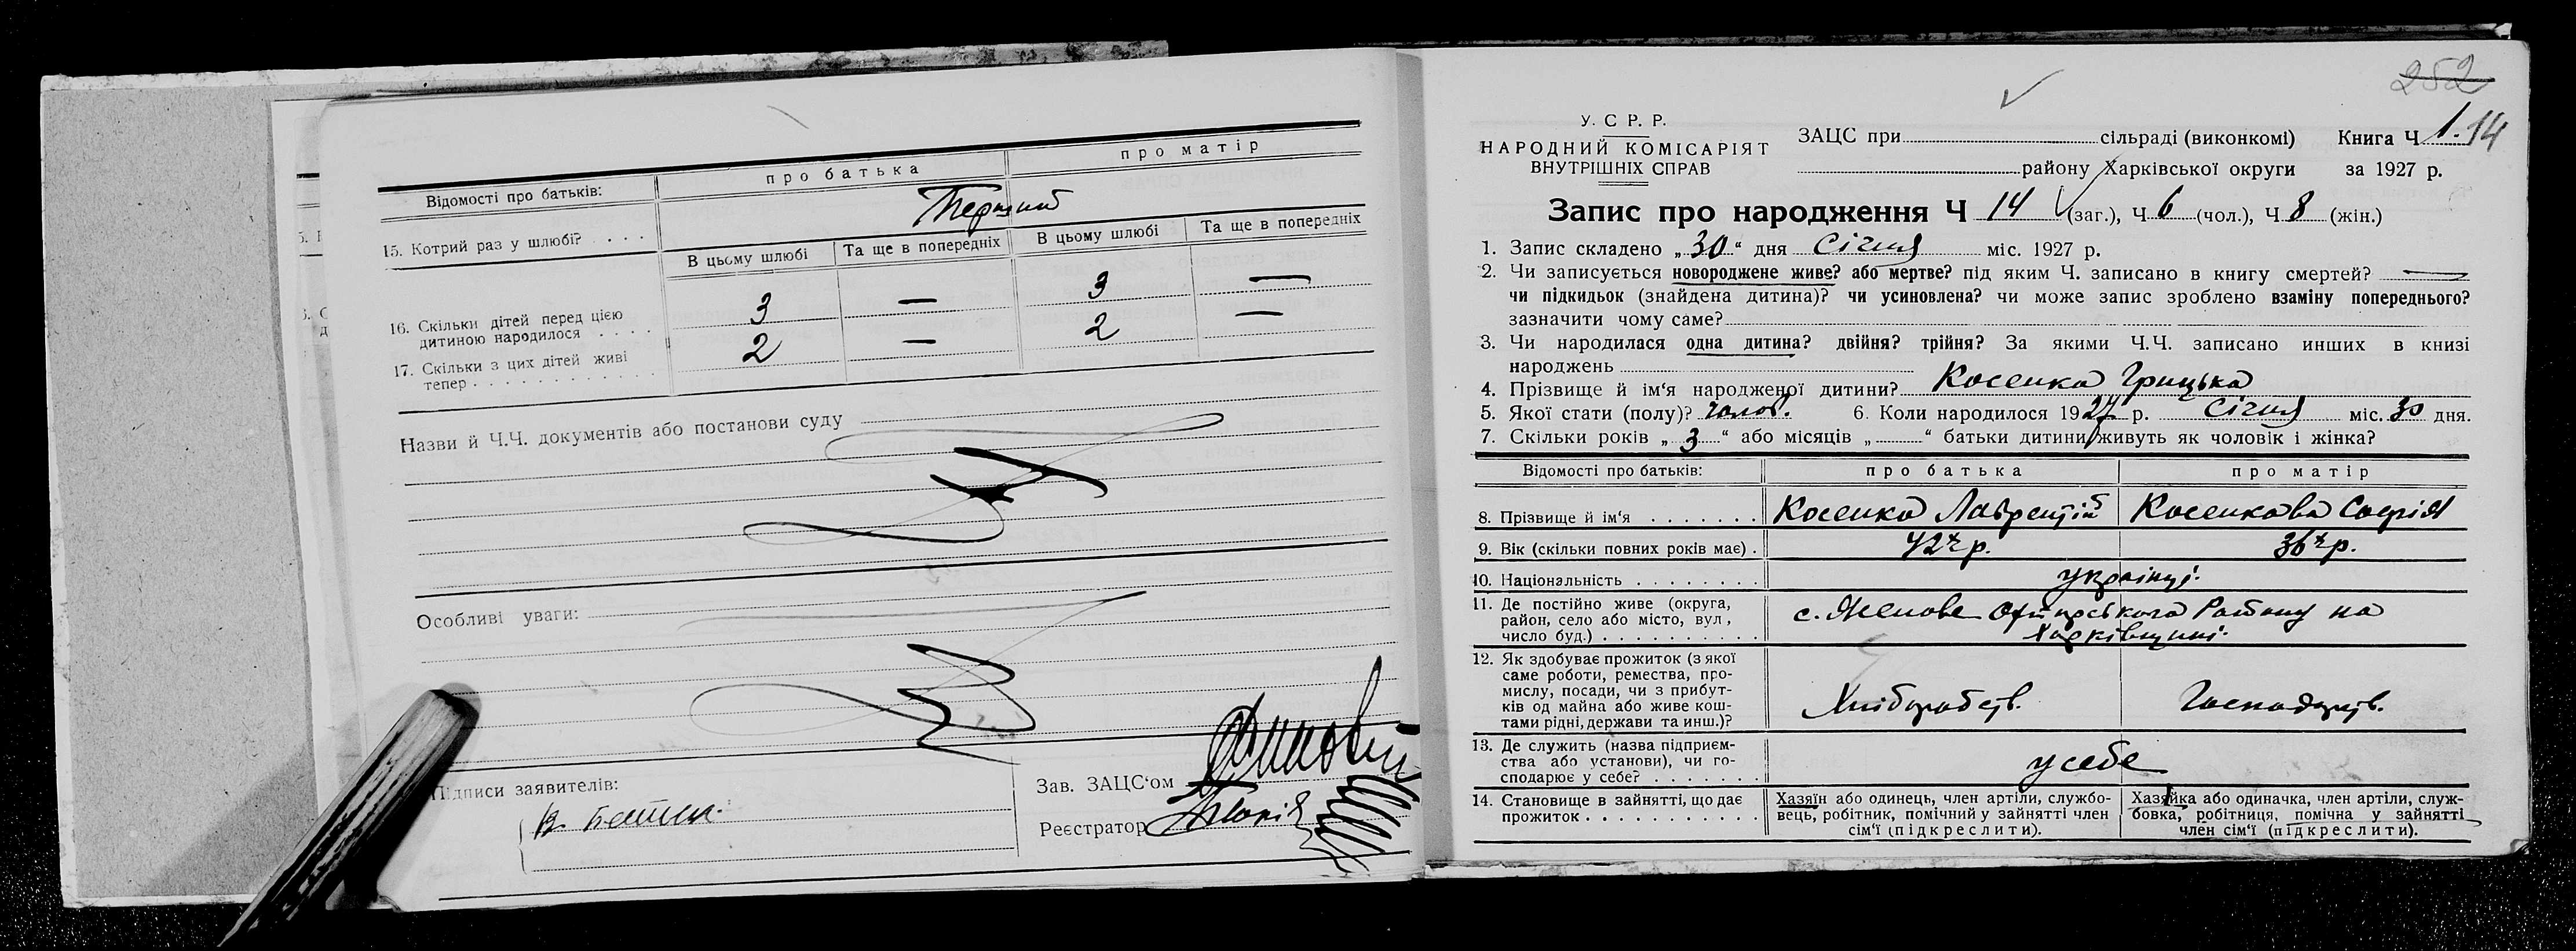 Відомості про батьків:
про батька
про матір
15. Котрий раз у шлюбі? . . . .
Перший
В цьому шлюбі
Та ще в попередніх
В цьому шлюбі
Та ще в попередніх
16. Скільки дітей перед цією
дитиною народилося . . . .
3 — 3 —
17. Скільки з цих дітей живі
тепер . . . . . . . . . . . .
2 — 2 —
Назви й Ч.Ч. документів або постанови суду
Особливі уваги:
Підписи заявителів:
Зав. ЗАЦС'ом
Реєстратор
252
У. С Р. Р.
НАРОДНИЙ КОМІСАРІЯТ
ВНУТРІШНІХ СПРАВ
ЗАЦС при сільраді (виконкомі) Книга Ч 1. 14
району Харківської округи за 1927 р.
Запис про народження Ч 14 (заг.), Ч 6 (чол.), Ч 8 (жін.)
1. Запис складено „30“ дня Січня міс. 1927 р.
2. Чи записується новороджене живе? або мертве? під яким Ч. записано в книгу смертей? —
чи підкидьок (знайдена дитина)? чи усиновлена? чи може запис зроблено взаміну попереднього?
зазначити чому саме?
3. Чи народилася одна дитина? двійня? трійня? За якими Ч.Ч. записано инших в книзі
народжень
4. Прізвище й ім'я народженої дитини? Косенка Грицька
5. Якої стати (полу)? чолов. 6. Коли народилося 1927 р. Січня міс. 30 дня.
7. Скільки років „3“ або місяців „ “ батьки дитини живуть як чоловік і жінка?
Відомості про батьків:
про батька
про матір
8. Прізвище й ім'я . . . . . . .
Косенко Лаврентій
Косенкова Софія
9. Вік (скільки повних років має) .
42 р.
36 р.
10. Національність . . . . . . . .
українці.
11. Де постійно живе (округа,
район, село або місто, вул.,
число буд.) . . . . . . . . . . .
на
Харківщині.
12. Як здобуває прожиток (з якої
саме роботи, ремества, про-
мислу, посади, чи з прибут-
ків од майна або живе кош-
тами рідні, держави та инш.)?
Хліборобств.
Господарств.
13. Де служить (назва підприєм-
ства або установи), чи го-
сподарює у себе? . . . . . . .
у себе
14. Становище в зайнятті, що дає
прожиток . . . . . . . . . . .
Хазяїн або одинець, член артіли, службо-
вець, робітник, помічний у зайнятті член
сім'ї (підкреслити).
Хазяйка або одиначка, член артіли, служ-
бовка, робітниця, помічна у зайнятті
член сім'ї (підкреслити).